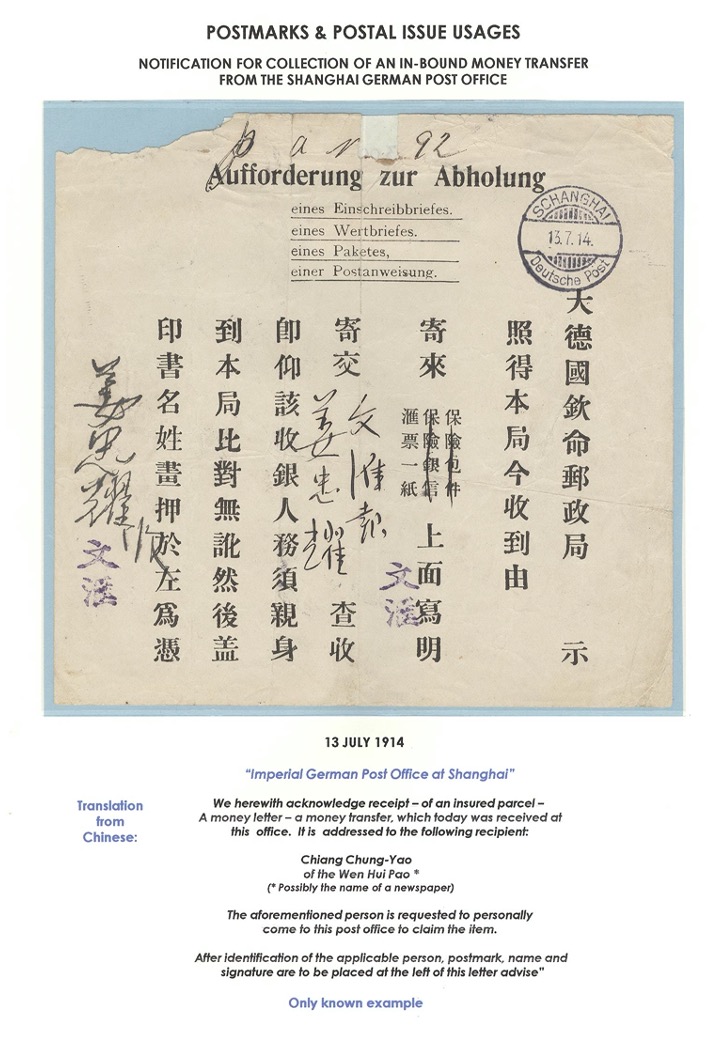 POSTMARKS & POSTAL ISSUE USAGES
NOTIFICATION FOR COLLECTION OF AN IN-BOUND MONEY TRANSFER
FROM THE SHANGHAI GERMAN POST OFFICE
92
Aufforderung zur Abholung
eines Einschreibbriefes.
eines Wertbriefes.
eines Paketes,
einer Postanweisung.
SCHANGHAI
13.7.14.
Deutsche Post
大德國欽命郵政局 示
照得本局今收到由
寄來
保險包件
保險銀信
滙票一紙
上面寫明
寄交
文滙報
姜忠耀
查收
卽仰該收銀人務須親身
到本局比對無訛然後盖
印書名姓畫押於左爲憑
姜忠耀
文滙
文滙
13 JULY 1914
“Imperial German Post Office at Shanghai”
Translation
from
Chinese:
We herewith acknowledge receipt – of an insured parcel –
A money letter – a money transfer, which today was received at
this office. It is addressed to the following recipient:
Chiang Chung-Yao
of the Wen Hui Pao *
(* Possibly the name of a newspaper)
The aforementioned person is requested to personally
come to this post office to claim the item.
After identification of the applicable person, postmark, name and
signature are to be placed at the left of this letter advise”
Only known example